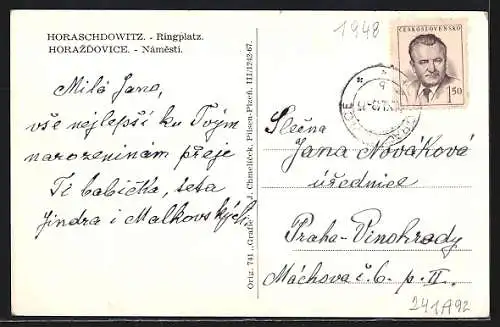 HORASCHDOWITZ. - Ringplatz.
HORAŽĎOVICE. - Náměstí.
Milá Jano,
vše nejlepší ku Tvým
narozeninám přeje
Ti babička, teta
Jindra i Malkovských
Orig. 741 „Grafie" J. Chmelíček, Pilsen-Plzeň. III/1242-67.
1948
ČESKOSLOVENSKO
1.50
Slečna
Jana Nováková
úřednice
Praha-Vinohrady
Máchova č. 6. p. II.
241A92